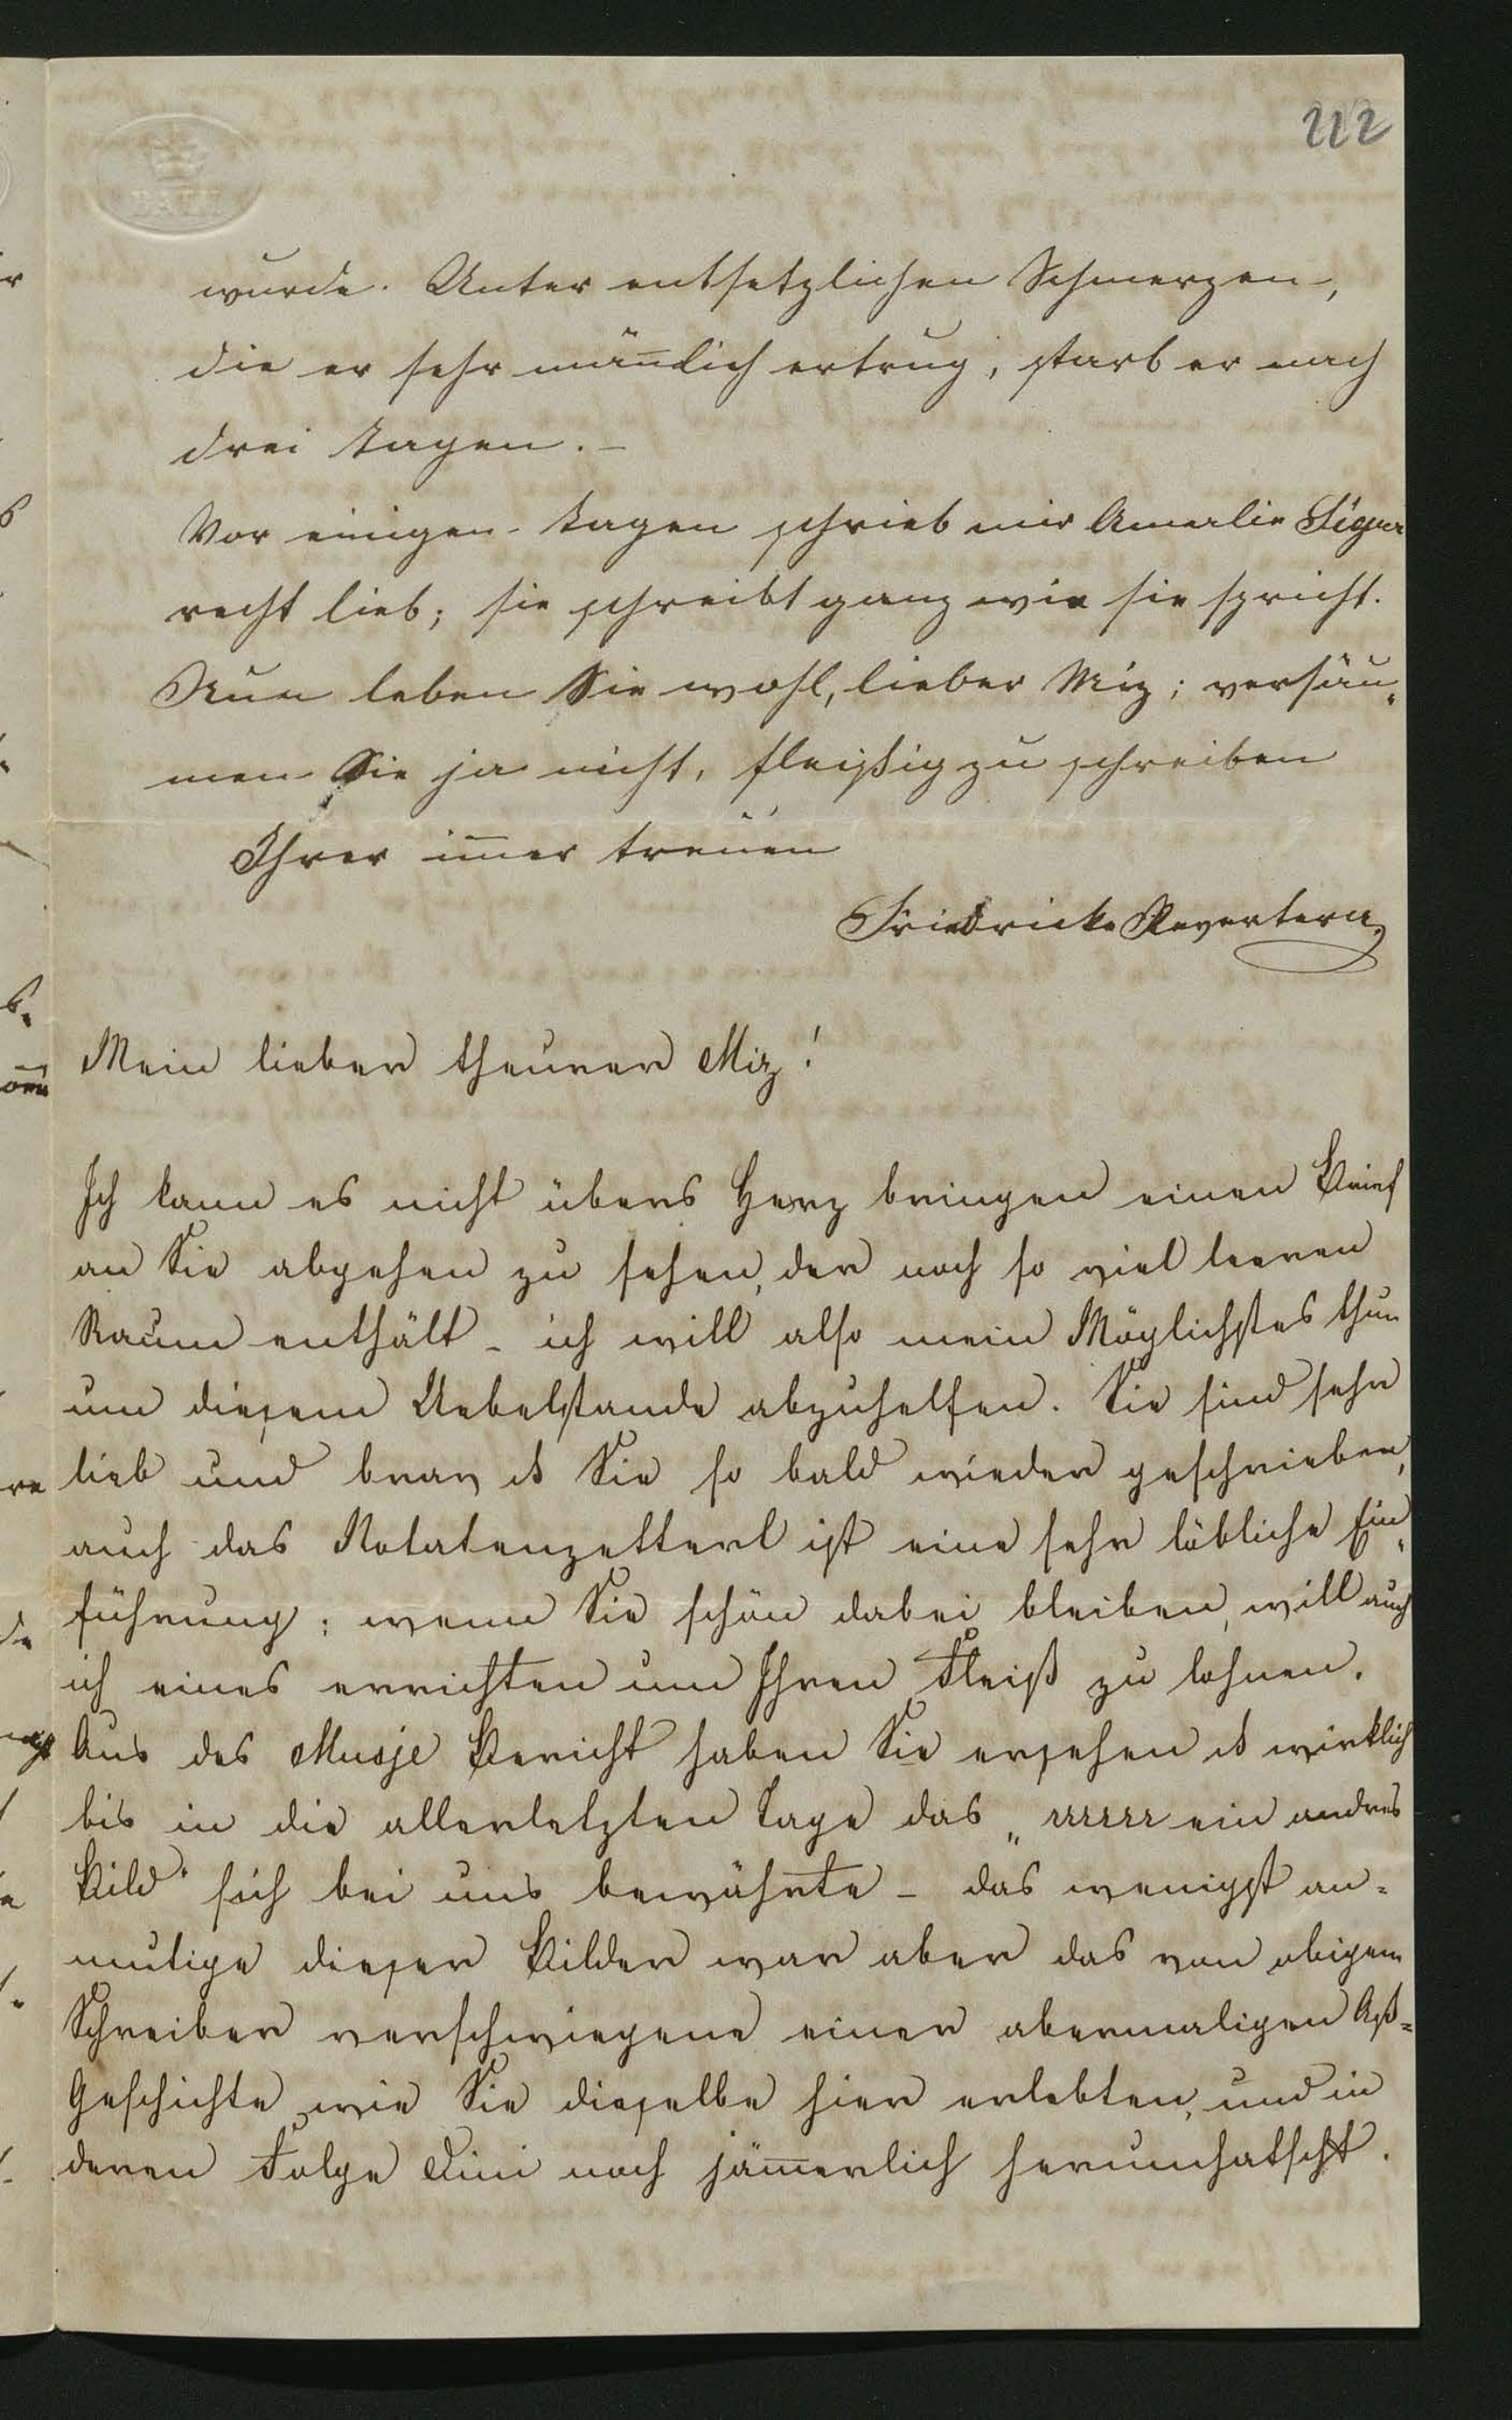 212
BATH
wurde. Unter entsetzlichen Schmerzen,
die er sehr mañlich ertrug, starb er nach
drei Tagen. –
Vor einigen Tagen schrieb mir Amalie
recht lieb; sie schreibt ganz wie sie spricht.
Nun leben Sie wohl, lieber Miz; versäu„
men Sie ja nicht, fleißig zu schreiben
Ihrer im̅er treuen
Friedricke Revertera
Mein lieber theurer Miz!
Ich kann es nicht übers Herz bringen einen Brief
an Sie abgehen zu sehen, der noch so viel leeren
Raum enthält – ich will also mein Möglichstes thun
um diesem Uebelstande abzuhelfen. Sie sind sehr
lieb und brav Sie so bald wieder geschrieben,
auch das Notatenzetterl ist eine sehr löbliche Ein„
führung; wenn Sie schön dabei bleiben, will auch
ich eines errichten um Ihren Fleiß zu lohnen.
Aus des Musje Bericht haben Sie ersehen wirklich
bis in die allerletzten Tage das „rrrrrr ein andres
Bild" sich bei uns bewährte – das wenigst an=
mutige dieser Bilder war aber das von obigem
Schreiber verschwiegene einer abermaligen
Geschichte wie Sie dieselbe hier erlebten, und in
deren Folge noch jäm̅erlich herumhatscht.